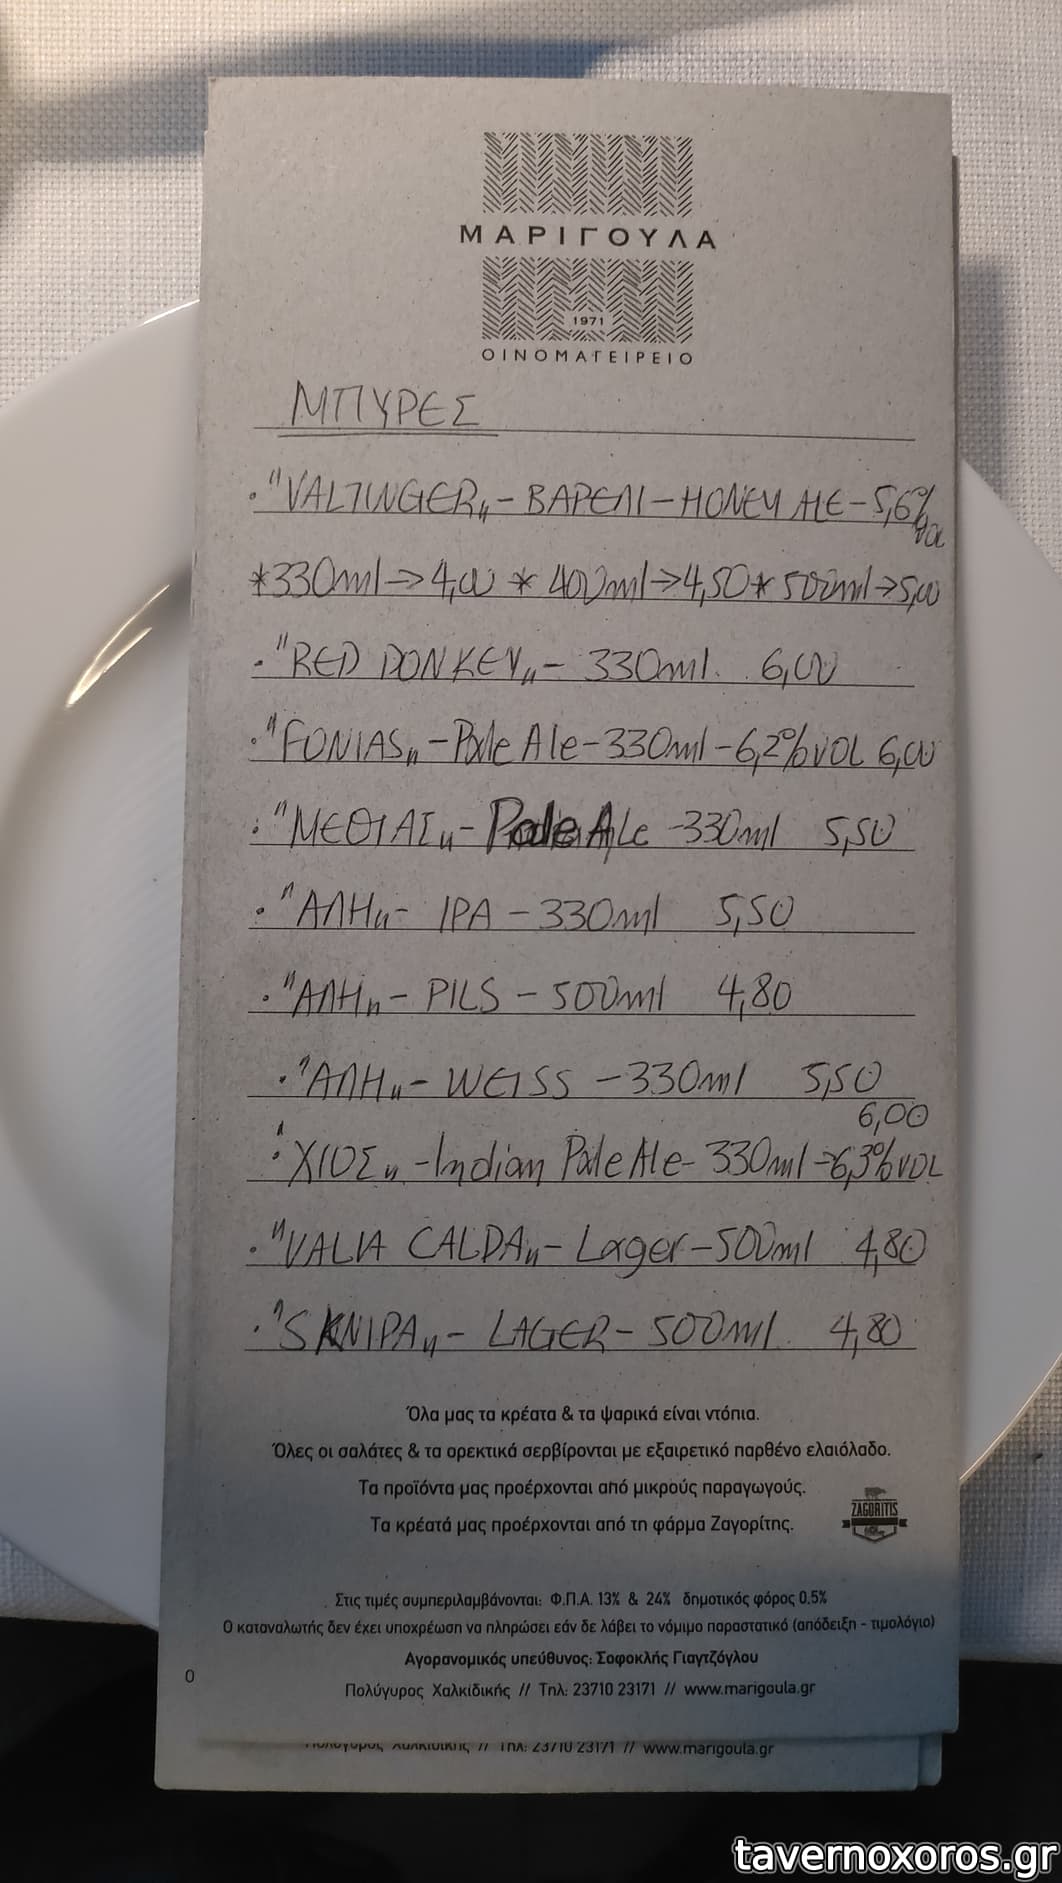 ΜΑΡΙΓΟΥΛΑ
1971
ΟΙΝΟΜΑΓΕΙΡΕΙΟ
ΜΠΥΡΕΣ
• "VALTINGER" - ΒΑΡΕΛΙ - HONEY ALE - 5,6% VOL
*330ml → 4,00 * 400ml → 4,50 * 500ml → 5,00
• "RED DONKEY" - 330ml. 6,00
• "FONIAS" - Pale Ale - 330ml - 6,2% VOL 6,00
• "ΜΕΘΙΑΣ" - Pale Ale - 330ml 5,50
• "ΑΛΗ" - IPA - 330ml 5,50
• "ΑΛΗ" - PILS - 500ml 4,80
• "ΑΛΗ" - WEISS - 330ml 5,50
6,00
• "ΧΙΟΣ" - Indian Pale Ale - 330ml - 6,3% VOL
• "VALIA CALDA" - Lager - 500ml 4,80
• "SKNIPA" - LAGER - 500ml. 4,80
Όλα μας τα κρέατα & τα ψαρικά είναι ντόπια.
Όλες οι σαλάτες & τα ορεκτικά σερβίρονται με εξαιρετικό παρθένο ελαιόλαδο.
Τα προϊόντα μας προέρχονται από μικρούς παραγωγούς.
Τα κρέατά μας προέρχονται από τη φάρμα Ζαγορίτης.
ZAGORITIS
Στις τιμές συμπεριλαμβάνονται: Φ.Π.Α. 13% & 24% δημοτικός φόρος 0.5%
Ο καταναλωτής δεν έχει υποχρέωση να πληρώσει εάν δε λάβει το νόμιμο παραστατικό (απόδειξη - τιμολόγιο)
Αγορανομικός υπεύθυνος: Σοφοκλής Γιαγτζόγλου
0
Πολύγυρος Χαλκιδικής // Τηλ: 23710 23171 // www.marigoula.gr
Πολύγυρος Χαλκιδικής // Τηλ: 23710 23171 // www.marigoula.gr
tavernoxoros.gr